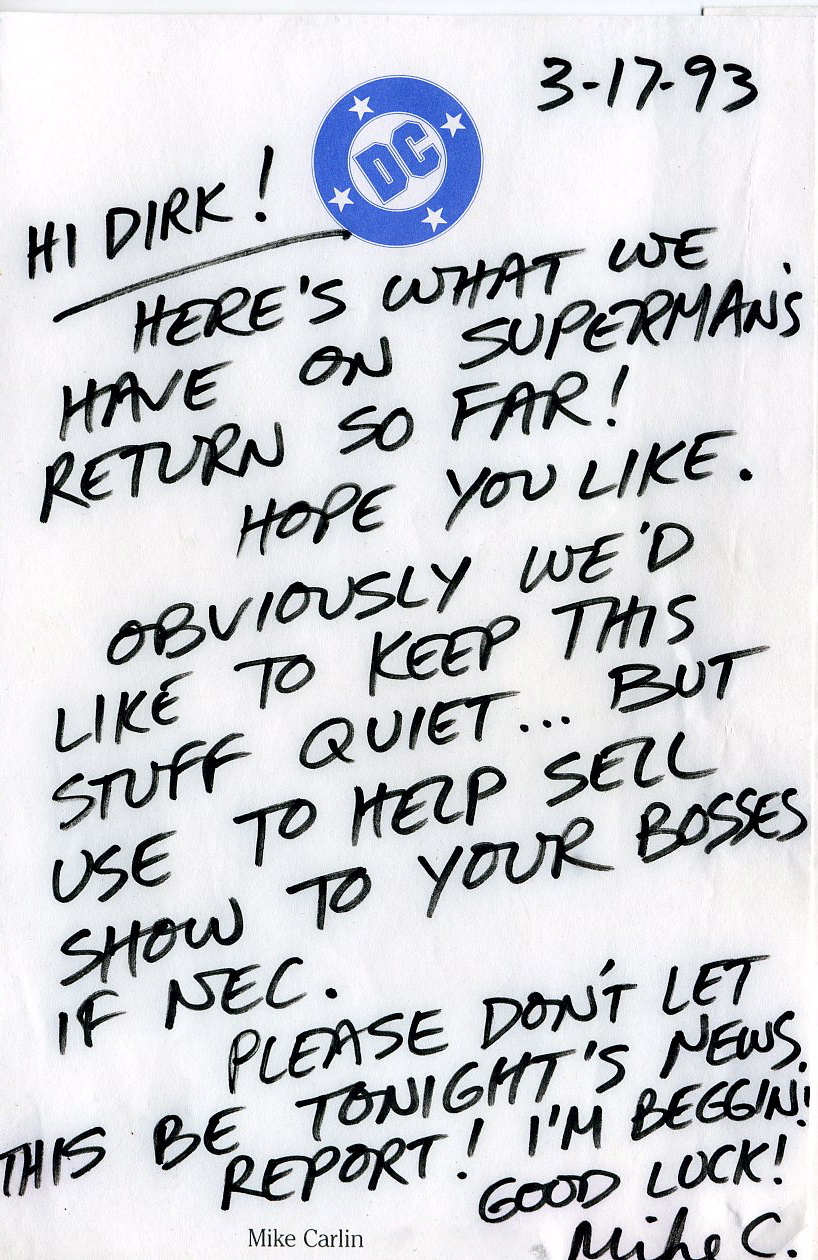 3-17-93
DC
HI DIRK!
HERE'S WHAT WE
HAVE ON SUPERMAN'S
RETURN SO FAR!
HOPE YOU LIKE.
OBVIOUSLY WE'D
LIKE TO KEEP THIS
STUFF QUIET... BUT
USE TO HELP SELL
SHOW TO YOUR BOSSES
IF NEC.
PLEASE DON'T LET
THIS BE TONIGHT'S NEWS
REPORT! I'M BEGGIN!
GOOD LUCK!
Mike C.
Mike Carlin